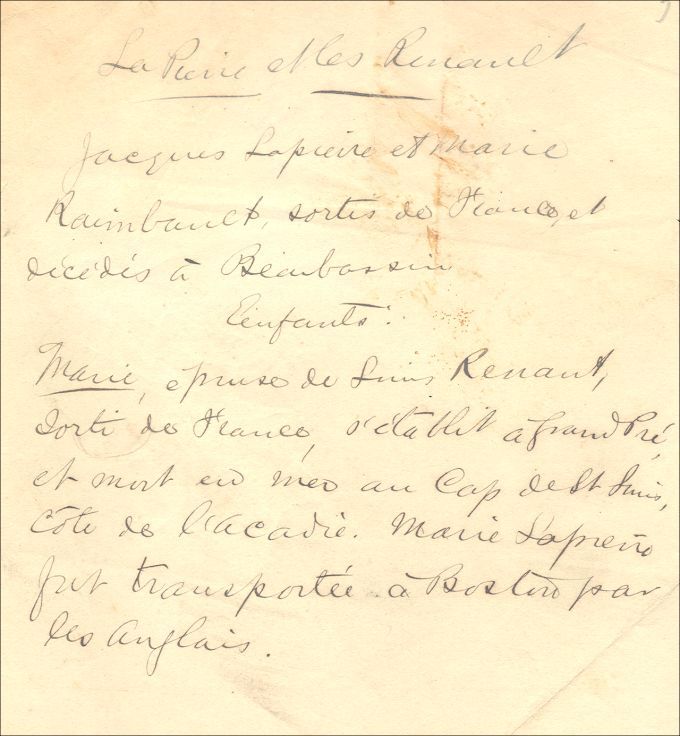 La Pierre et les Renault
Jacques Lapierre et Marie
Raimbault, sortis de France, et
décédés à Beaubassin
Enfants:
Marie, épouse de Louis Renaut,
Sorti de France, s'établit à Grand Pré,
et mort en mer au Cap de St Louis,
Côte de l'Acadie. Marie Lapierre
fut transportée à Boston par
les Anglais.